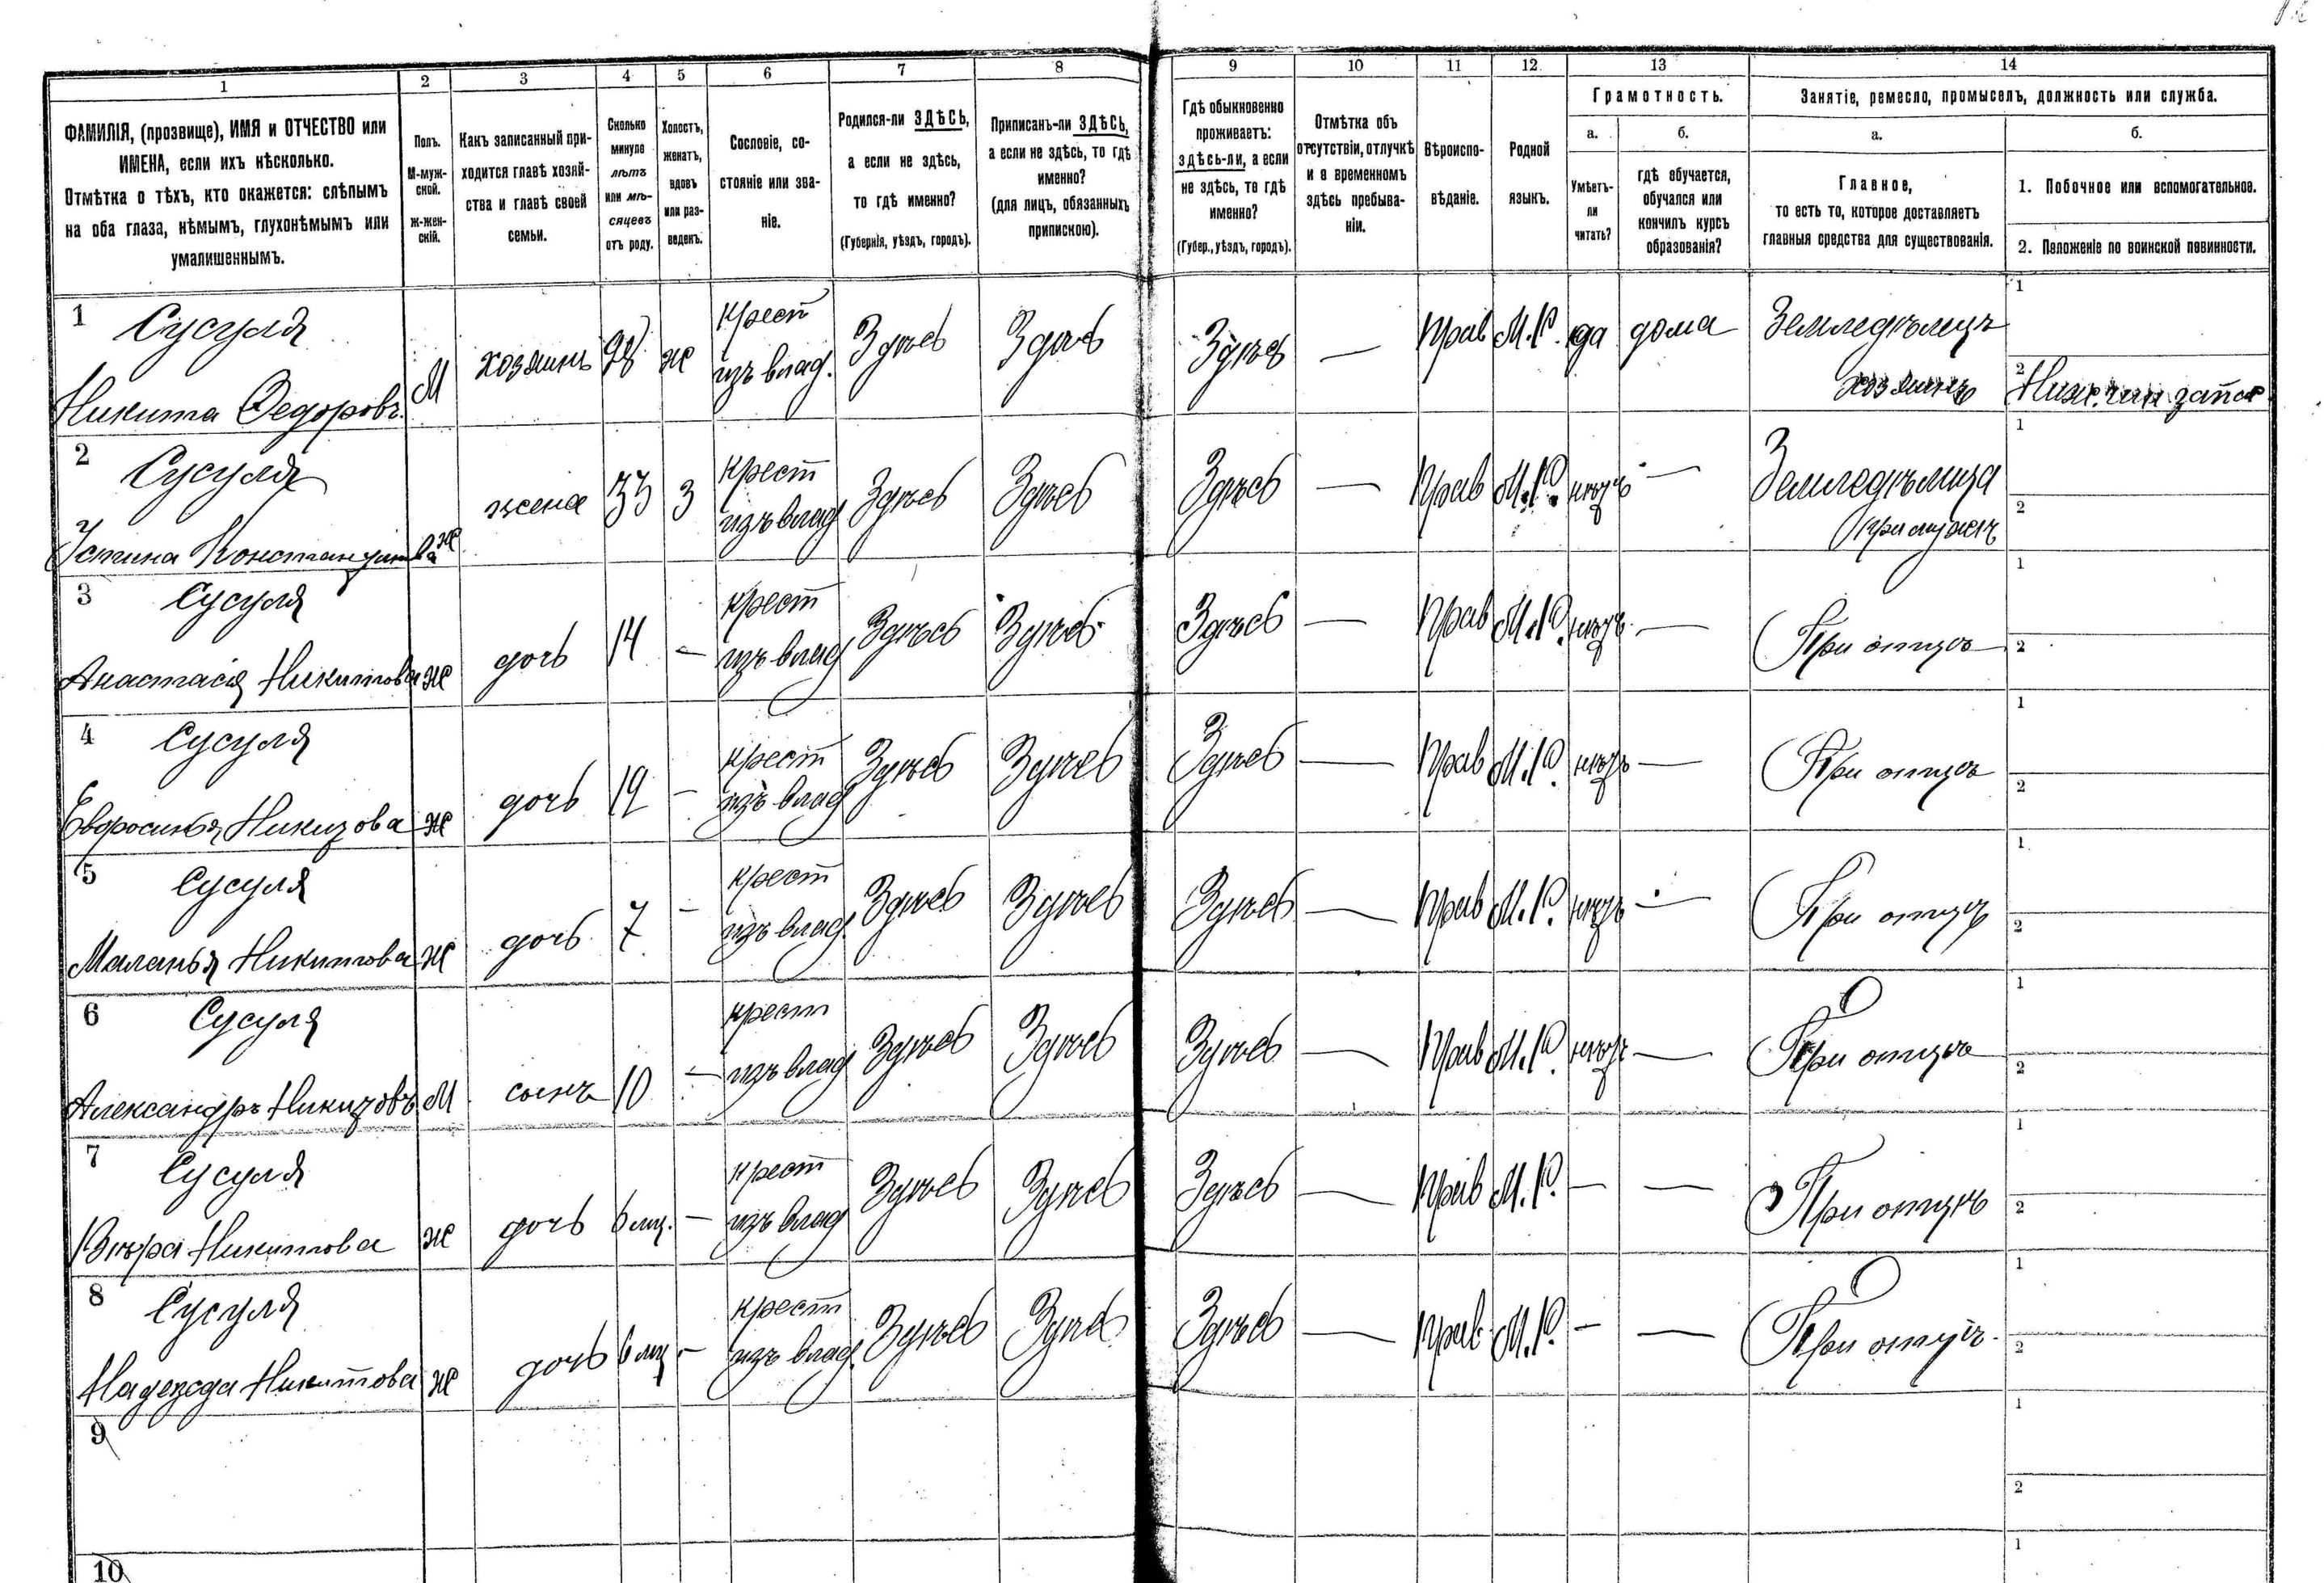 1 2 3 4 5 6 7 8 9 10 11 12 13 14
ФАМИЛІЯ, (прозвище), ИМЯ и ОТЧЕСТВО или
ИМЕНА, если ихъ нѣсколько.
Отмѣтка о тѣхъ, кто окажется: слѣпымъ
на оба глаза, нѣмымъ, глухонѣмымъ или
умалишеннымъ.
Полъ.
М-муж-
ской.
Ж-жен-
скій.
Какъ записанный при-
ходится главѣ хозяй-
ства и главѣ своей
семьи.
Сколько
минуло
лѣтъ
или мѣ-
сяцевъ
отъ роду.
Холостъ,
женатъ,
вдовъ
или раз-
веденъ.
Сословіе, со-
стояніе или зва-
ніе.
Родился-ли ЗДѢСЬ,
а если не здѣсь,
то гдѣ именно?
(Губернія, уѣздъ, городъ).
Приписанъ-ли ЗДѢСЬ,
а если не здѣсь, то гдѣ
именно?
(для лицъ, обязанныхъ
припискою).
Гдѣ обыкновенно
проживаетъ:
здѣсь-ли, а если
не здѣсь, то гдѣ
именно?
(Губер., уѣздъ, городъ).
Отмѣтка объ
отсутствіи, отлучкѣ
и о временномъ
здѣсь пребыва-
ніи.
Вѣроиспо-
вѣданіе.
Родной
языкъ.
Грамотность.
а.
Умѣетъ-
ли
читать?
б.
гдѣ обучается,
обучался или
кончилъ курсъ
образованія?
Занятіе, ремесло, промыселъ, должность или служба.
а.
Главное,
то есть то, которое доставляетъ
главныя средства для существованія.
б.
1. Побочное или вспомогательное.
2. Положеніе по воинской повинности.
1 Сусуля
Никита Федоровъ
М хозяинъ ж
крест
изъ влад.
Здѣсь Здѣсь Здѣсь — Прав М.Р. да дома
Земледѣлецъ
хозяинъ
1
2 Ниж. чин запас
2 Сусуля
Устина Константинова
ж жена 33 З
крест
изъ влад
Здѣсь Здѣсь Здѣсь — Прав М.Р. нѣтъ —
Земледѣлица
при мужѣ
1
2
3 Сусуля
Анастасія Никитова
ж дочь 14 —
крест
изъ влад
Здѣсь Здѣсь Здѣсь — Прав М.Р. нѣтъ — При отцѣ
1
2
4 Сусуля
Евфросинья Никитова
ж дочь 12 —
крест
изъ влад
Здѣсь Здѣсь Здѣсь — Прав М.Р. нѣтъ — При отцѣ
1
2
5 Сусуля
Маланья Никитова
ж дочь 7 —
крест
изъ влад.
Здѣсь Здѣсь Здѣсь — Прав М.Р. нѣтъ — При отцѣ
1
2
6 Сусуля
Александръ Никитовъ
М сынъ 10 —
крест
изъ влад
Здѣсь Здѣсь Здѣсь — Прав М.Р. нѣтъ — При отцѣ
1
2
7 Сусуля
Вѣра Никитова
ж дочь 6 мц. —
крест
изъ влад
Здѣсь Здѣсь Здѣсь — Прав М.Р. — — При отцѣ
1
2
8 Сусуля
Надежда Никитова
ж дочь 6 мц —
крест
изъ влад.
Здѣсь Здѣсь Здѣсь — Прав М.Р. — — При отцѣ
1
2
9
1
2
10
1